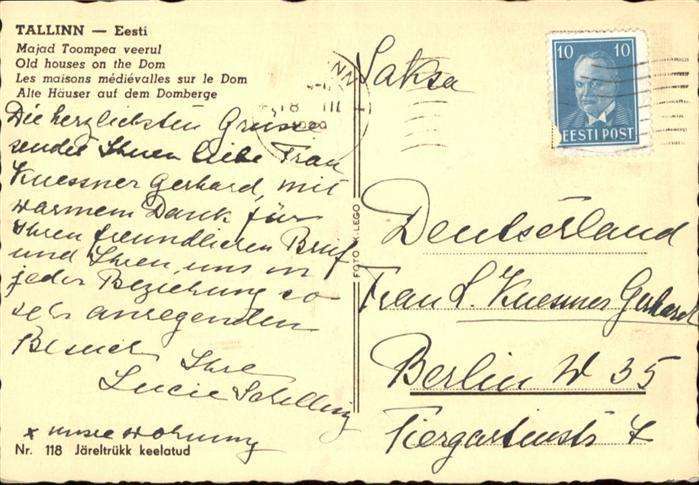 TALLINN — Eesti
Majad Toompea veerul
Old houses on the Dom
Les maisons médiévalles sur le Dom
Alte Häuser auf dem Domberge
Die herzlichsten Grüsse
sendet Ihnen liebe Frau
Kuessner Gerhard, mit
warmem Dank für
Ihren freundlichen Brief
und Ihren, uns in
jeder Beziehung so
sehr anregenden
Besuch Ihre
Lucie Schilling
x unsere Wohnung
Nr. 118 Järeltrükk keelatud
FOTO K. LEGO
18 III
10 10
EESTI POST
Saksa
Deutschland
Frau L. Kuessner Gerhard
Berlin W 35
Tiergartenstr 7